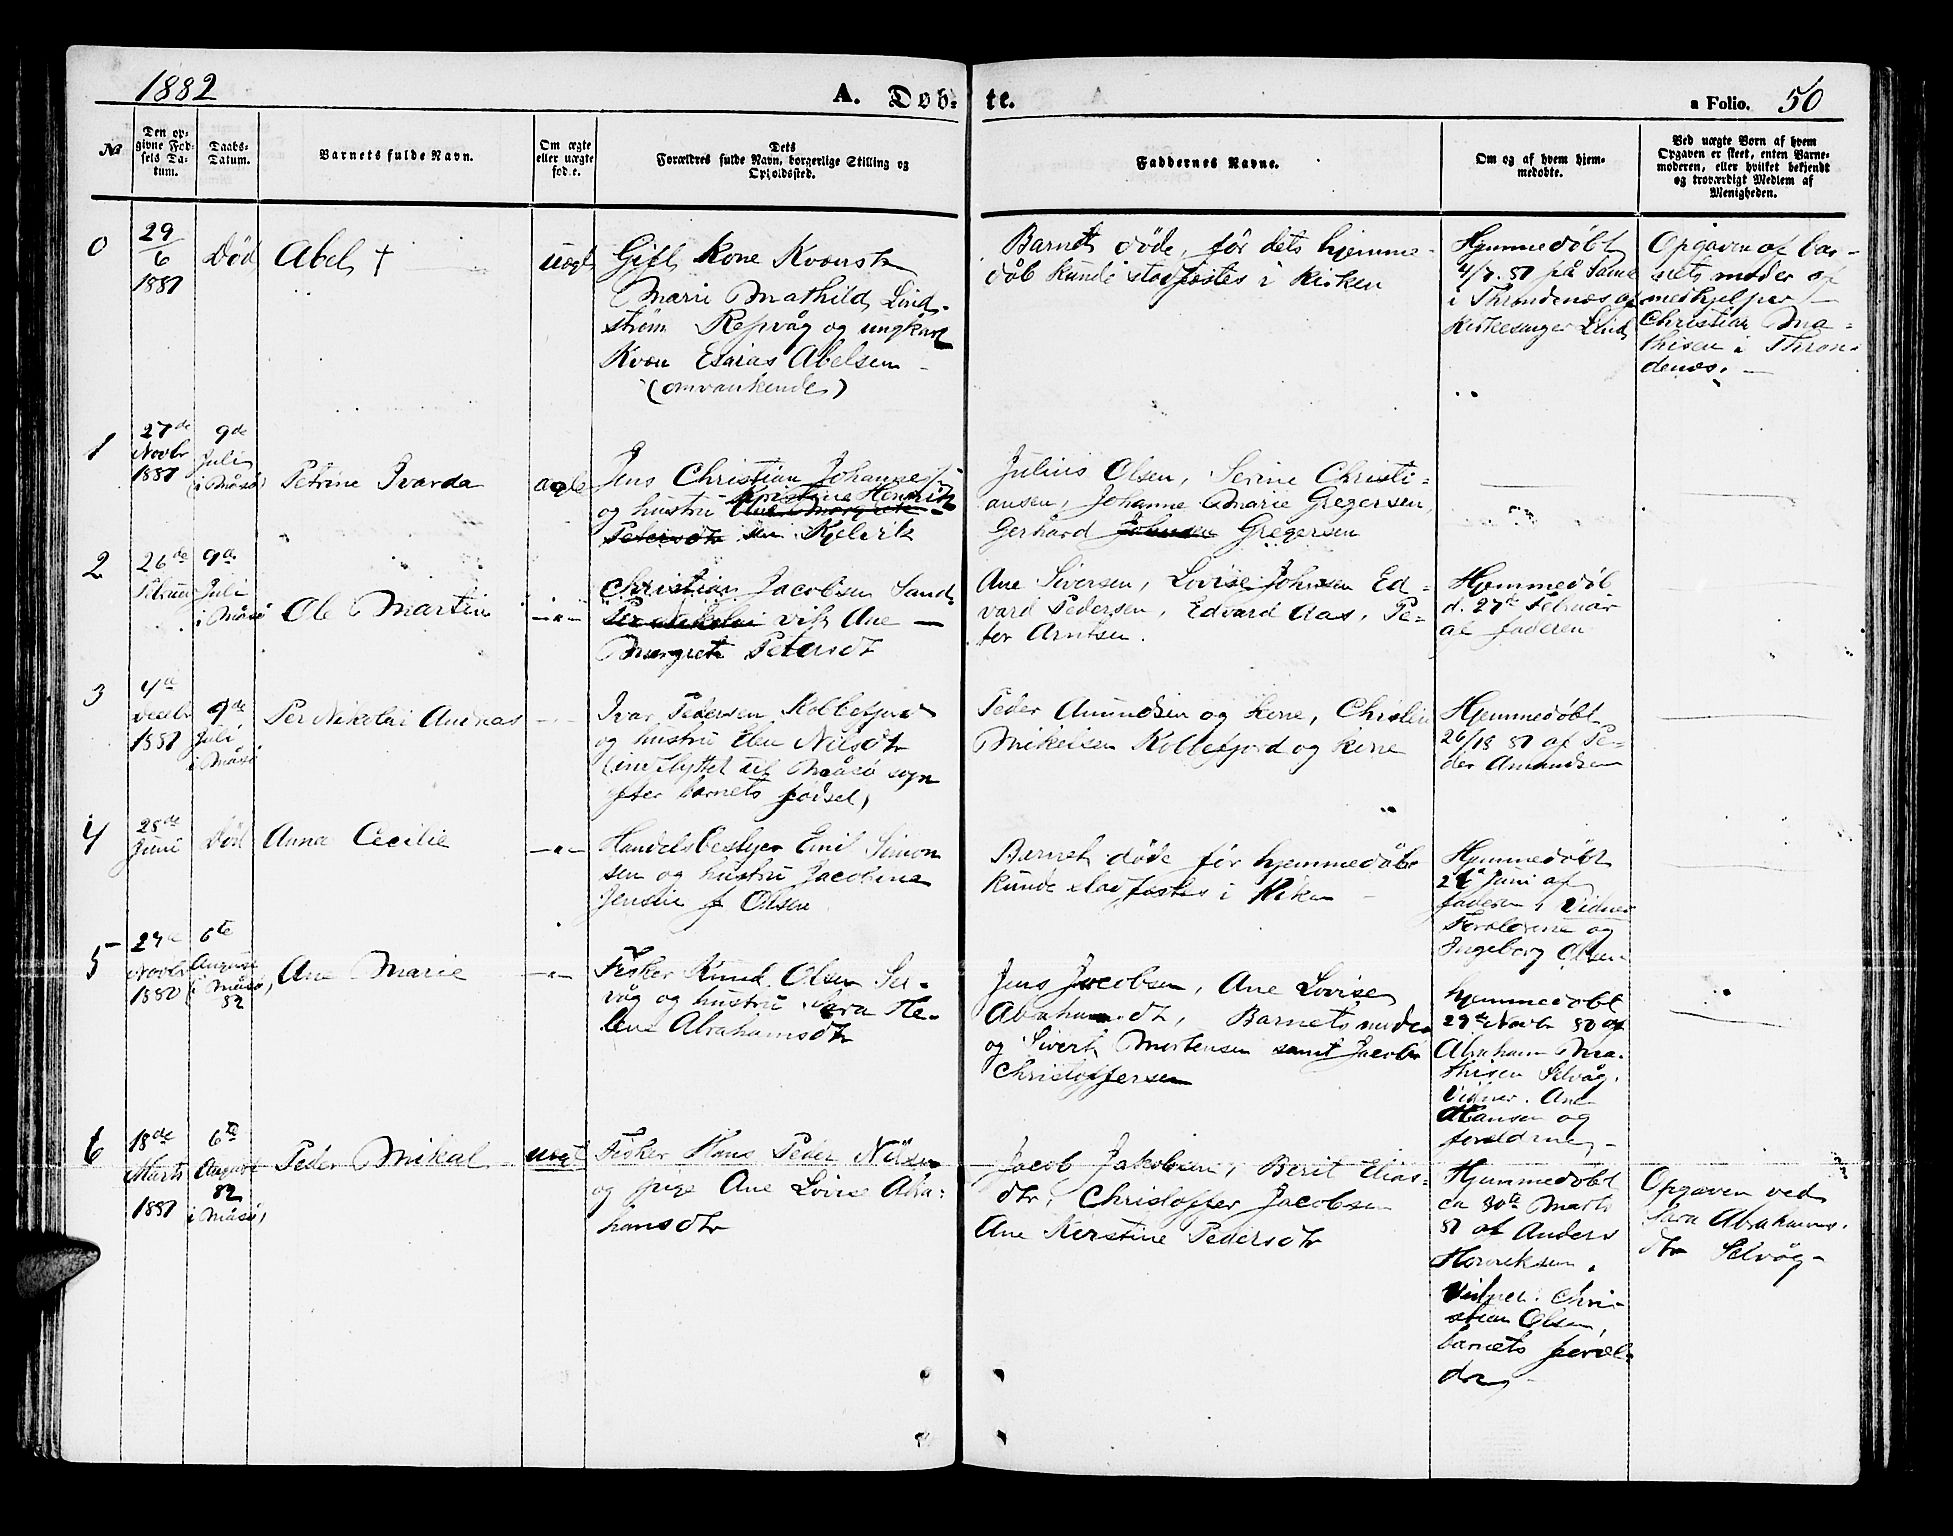 1882
A. Døb-
te.
a Folio. 50
No
Den op-
givne Fød-
sels Da-
tum.
Daabs-
Datum.
Barnets fulde Navn.
Om ægte
eller uægte
fød.e.
Dets
Forældres fulde Navn, borgerlige Stilling og
Opholdssted.
Faddernes Navne.
Om og af hvem hjem-
medøbte.
Ved uægte Børn af hvem
Opgaven er skeet, enten Barne-
moderen, eller hvilket bekjendt
og troværdigt Medlem af
Menigheden.
0
29
6
1881
Død
Abel †
uægt
Gift Kone Kvænsk
Marie Mathild Lind-
strøm Repvåg og ungkarl
Kvæn Esaias Abelsen
(omvankende)
Barnet døde, før dets hjemme-
dåb kunde stadfæstes i kirken
Hjemmedøbt
4/7. 81 på
i Throndenæs af
Kirkesanger Lind
Opgaven af bar-
nets moder af
medhjelper
Christian Ma-
thisen i Thron-
denæs.
1
27de
Novbr
1881
9de
Juli
(i Måsø)
Petrine Ivarda
ægte
Jens Christian Johannes
Kristine Henrik
og hustru Ane Margrete
Petersdtr sen Kjelvik
Julius Olsen, Serine Christi-
ansen, Johanne Marie Gregersen,
Gerhard Johnsen Gregersen
2
26de
Februar
9de
Juli
i Måsø
Ole Martin
-"-
Christian Jacobsen Sand-
Per Nikolai vik Ane
Margrete Petersdtr
Ane Siversen, Lovise Johnsen Ed-
vard Pedersen, Edvard Aas, Pe-
ter Arntsen.
Hjemmedøb
d. 27de Februar
af faderen
3
4de
Decbr
1881
9de
Juli
i Måsø
Per Nikolai Andreas
-"-
Ivar Pedersen Kobbefjord
og hustru Elen Nilsdtr
(indflyttet til Måsø sogn
efter barnets fødsel)
Peder Amundsen og kone, Christen
Mikelsen Kobbefjord og kone
Hjemmedøbt
26/12 81 af Pe-
der Amundsen
4
25de
Juni
Død
Anna Cecilie
-"-
Handelsbestyrer Emil Simon
sen og hustru Jacobine
Jensine f Olsen
Barnet døde før hjemmedåb
kunde stadfæstes i kirken
Hjemmedøbt
Juni af
faderen, Vidner
Forældrene og
Ingeborg Olsen
5
Novbr
1880
6te
August
(i Måsø)
82
Ane Marie
-"-
Fisker Knud Olsen Sel-
våg og hustru Sara He-
lene Abrahamsdtr
Jens Jacobsen, Ane Lovise
Abrahamsdtr, Barnets moder
og Sivert Mortensen samt Jacob
Christoffersen
hjemmedøbt
29de Novbr 80 af
Abraham Ma-
thisen Selvåg.
Vidner. Ane
Hansen og
forældrene
6
18de
Marts
1881
6te
August
82
i Måsø,
Peder Mikal
uægt
Fisker Hans Peder Nilsen
og pige Ane Lovise Abra-
hamsdtr
Jacob Jakobsen, Berit Elias-
dtr, Christoffer Jacobsen
Ane Kerstine Pedersdtr
Hjemmedøbt
ca 30te Marts
81 af Anders
Henriksen.
Vidner: Chri-
stian Olsen,
barnets foræl-
dre
Opgaven ved
Sara Abrahams-
dtr Selvåg